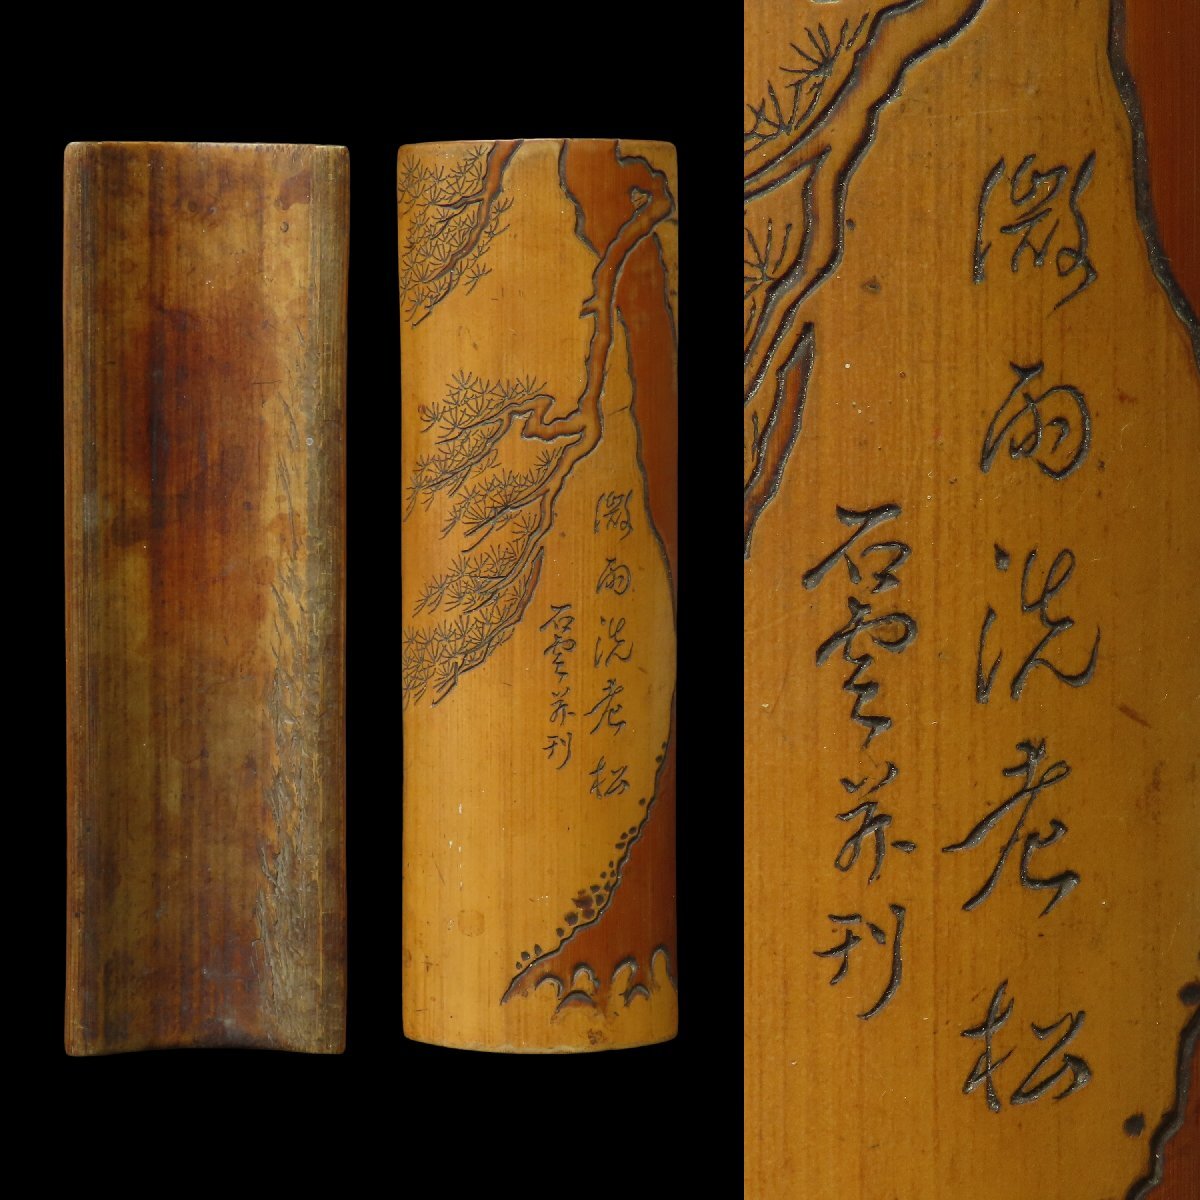 微雨洗老松
石雲并刊
微雨洗老松
石雲并刊